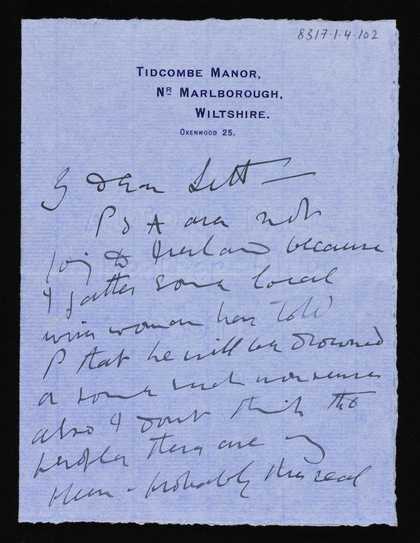 8317·1·4·102
TIDCOMBE MANOR,
NR MARLBOROUGH,
WILTSHIRE.
OXENWOOD 25.
dear Lett —
P & A are not
going to Ireland because
I gather some local
wise woman has told
P that he will be drowned
or some such nonsense
also I dont think the
people there are
them – probably the real